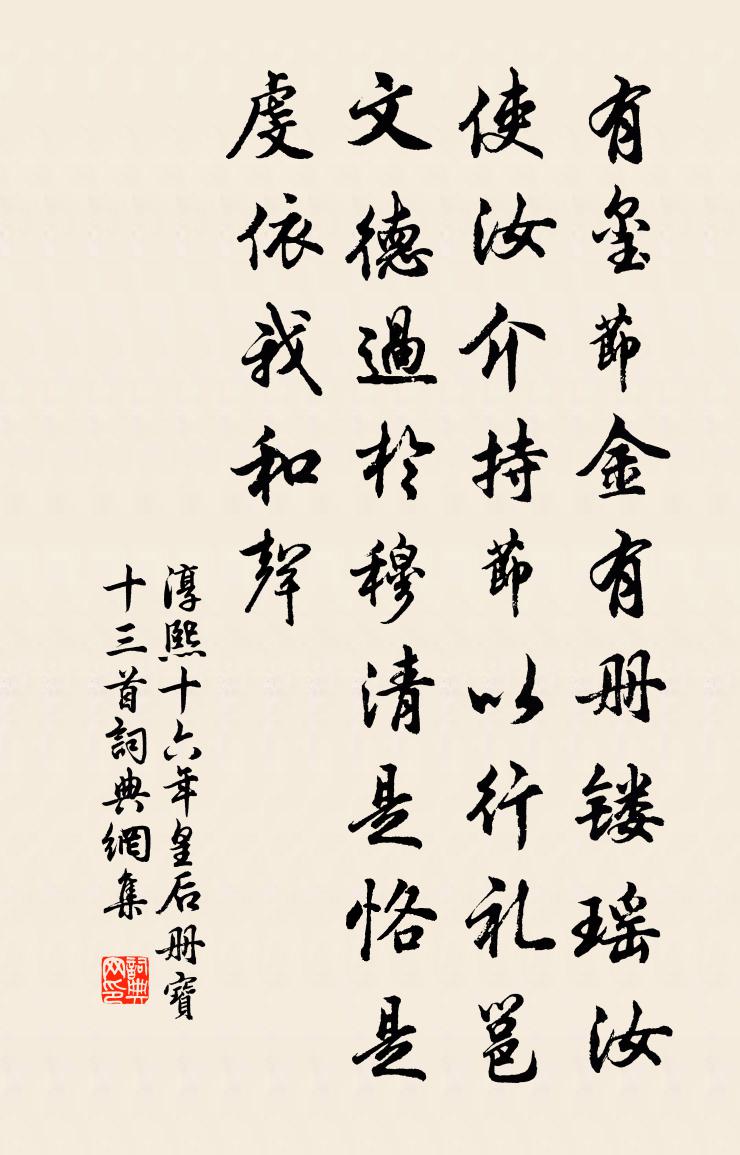 有璽節金有册镂瑶汝
使汝介持節以行礼邕
文德過於穆清是恪是
虔依我和聲
淳熙十六年皇后册寶
十三首詞典網集
詞典網印